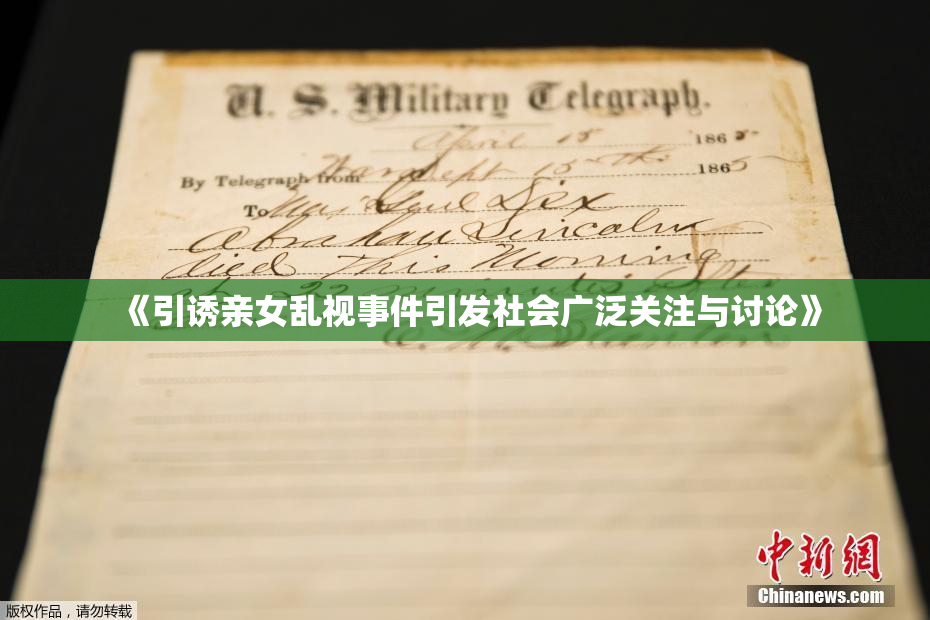 U. S. Military Telegraph.
April 15 1865
By Telegraph from War Dept 15th 1865
To Maj Genl Dix
Abraham Lincoln
died This Morning
at 22 minutes after
《引诱亲女乱视事件引发社会广泛关注与讨论》
E. M. Stanton
中新网
Chinanews.com
版权作品,请勿转载